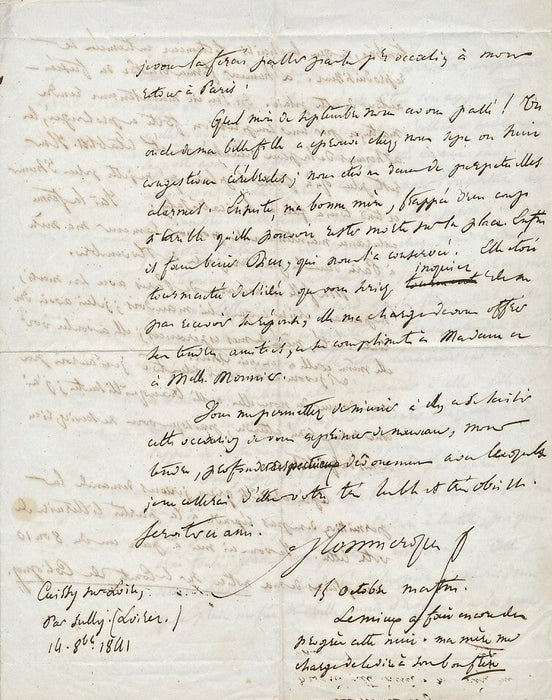 pour la ferais passer par le p occasion à mon
retour à Paris!
Quel mois de septembre nous avons passé! Un
oncle de ma belle fille a éprouvé chez nous sept ou huit
congestions cérébrales; nous étions dans de perpétuelles
alarmes. Ensuite, ma bonne mère, frappée d'un coup
si terrible qu'elle pouvait rester morte sur la place. Enfin
il faut bénir Dieu, qui nous l'a conservée. Elle était
tourmentée de l'idée que vous seriez inquiet de ne
pas recevoir sa réponse; elle me charge de vous offrir
ses tendres amitiés, et ses complimens à Madame et
à Melle. Monnier.
Vous me permettez de m'unir à elle, et de saisir
cette occasion de vous exprimer de nouveau, mon
tendre, profond et respectueux dévouement avec lesquels
je ne cesserai d'être votre très humble et très obéiss.
serviteur et ami.
Cuissy sur Loire,
Par Sully. (Loiret.)
14. 8bre 1841
15 octobre matin.
Le mieux a fait encore des
progrès cette nuit. ma mère me
charge de le dire à son bon frère